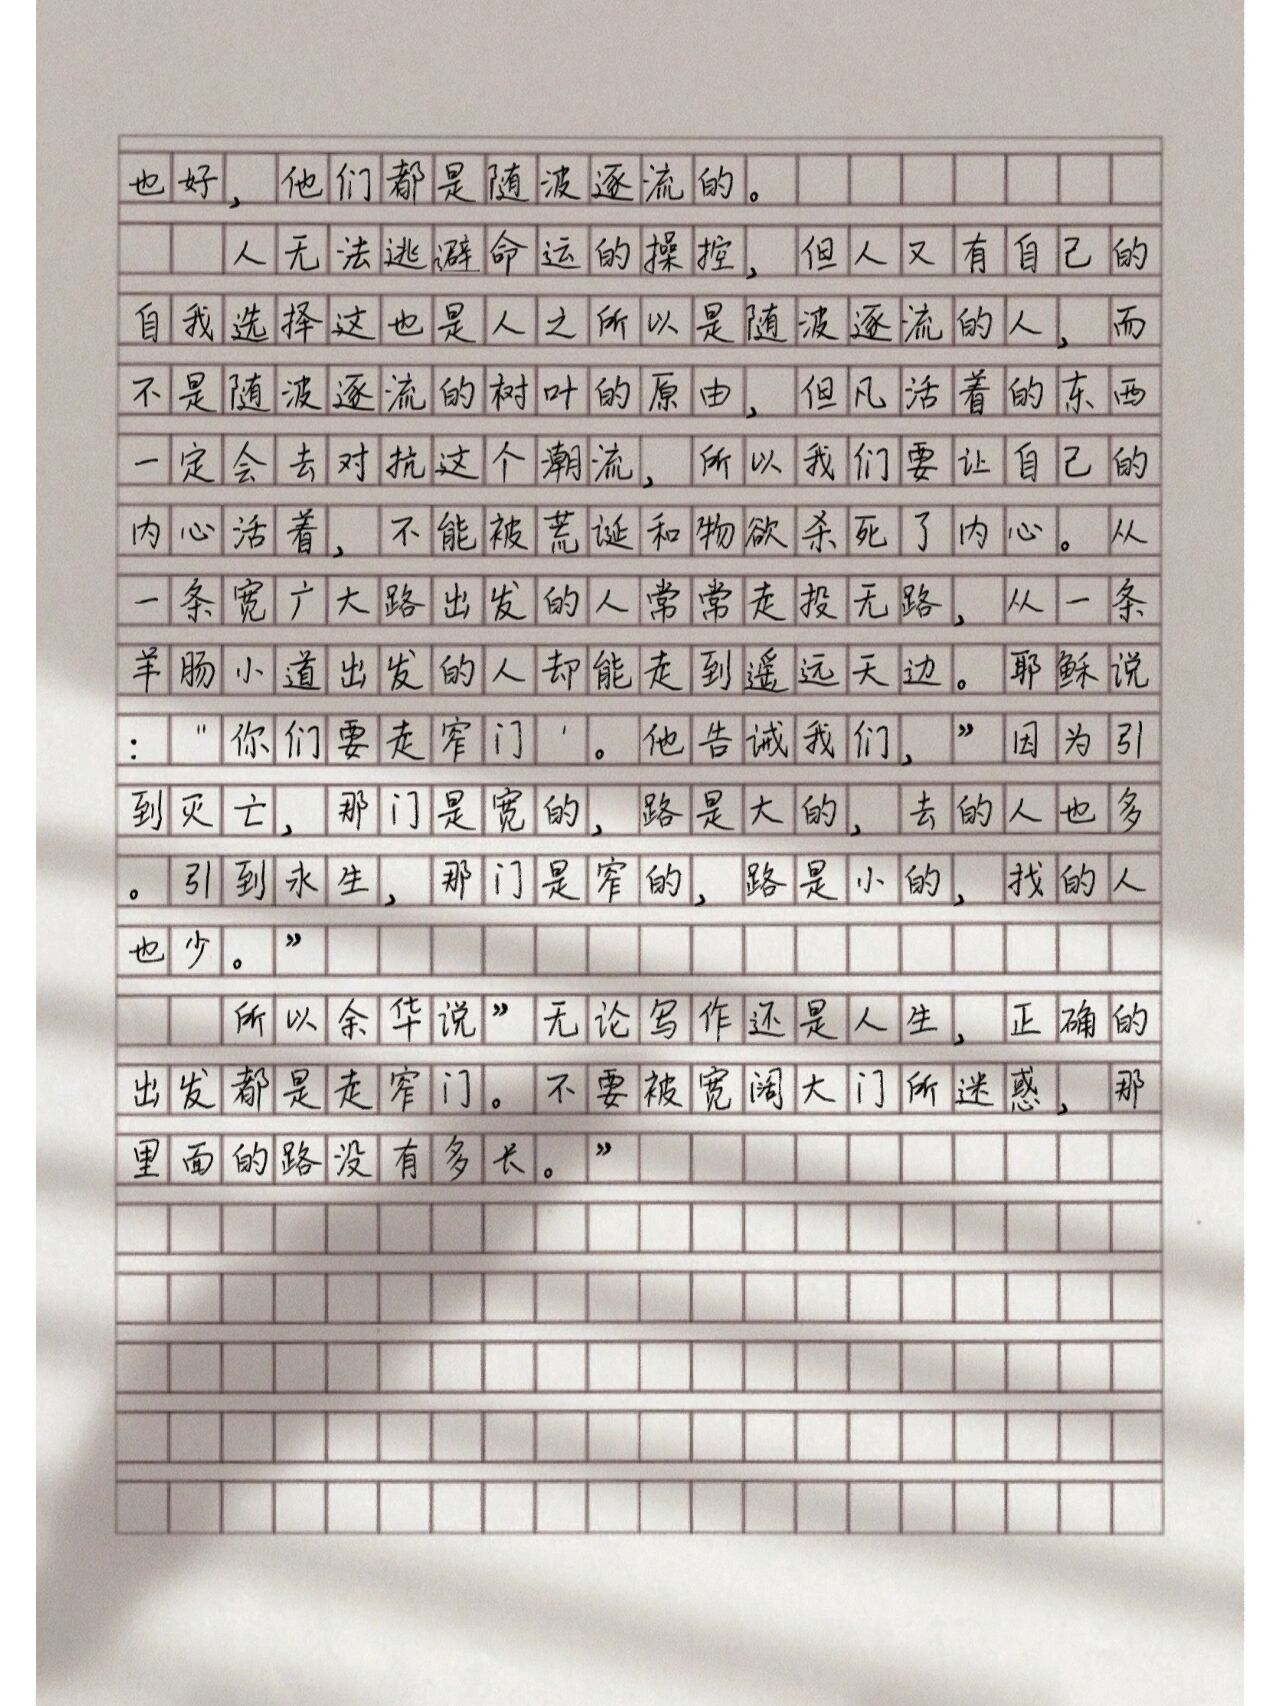 也好，他们都是随波逐流的。
人无法逃避命运的操控，但人又有自己的
自我选择这也是人之所以是随波逐流的人，而
不是随波逐流的树叶的原由，但凡活着的东西
一定会去对抗这个潮流，所以我们要让自己的
内心活着，不能被荒诞和物欲杀死了内心。从
一条宽广大路出发的人常常走投无路，从一条
羊肠小道出发的人却能走到遥远天边。耶稣说
："你们要走窄门'。他告诫我们，”因为引
到灭亡，那门是宽的，路是大的，去的人也多
。引到永生，那门是窄的，路是小的，找的人
也少。”
所以余华说”无论写作还是人生，正确的
出发都是走窄门。不要被宽阔大门所迷惑，那
里面的路没有多长。”